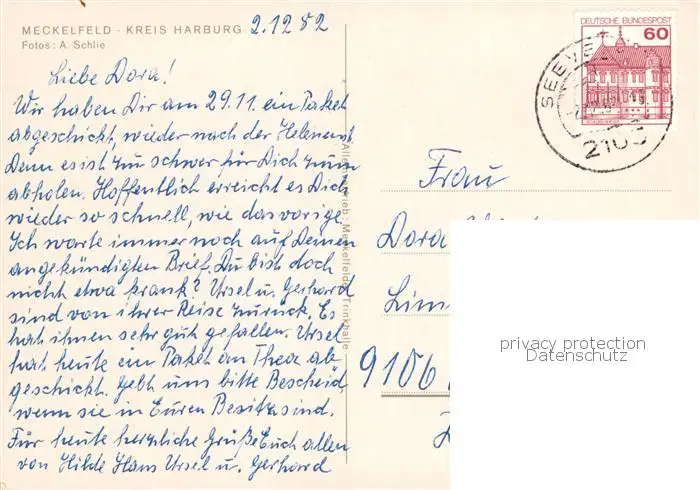 MECKELFELD · KREIS HARBURG 2.12 82
Fotos: A. Schlie
Liebe Dora!
Wir haben Dir am 29.11. ein Paket
abgeschickt, wieder nach der Helenenst.
Denn es ist zu schwer für Dich zum
abholen. Hoffentlich erreicht es Dich
wieder so schnell, wie das vorige.
Ich warte immer noch auf Deinen
angekündigten Brief. Du bist doch
nicht etwa krank? Ursel u. Gerhard
sind von ihrer Reise zurück. Es
hat ihnen sehr gut gefallen. Ursel
hat heute ein Paket an Thea ab-
geschickt. Gebt uns bitte Bescheid,
wenn sie in Euren Besitz sind.
Für heute herzliche Grüße Euch allen
von Hilde Hans Ursel u. Gerhard
Meckelfelder Trinkhalle
DEUTSCHE BUNDESPOST
60
2105
Frau
Dora
9106
privacy protection
Datenschutz